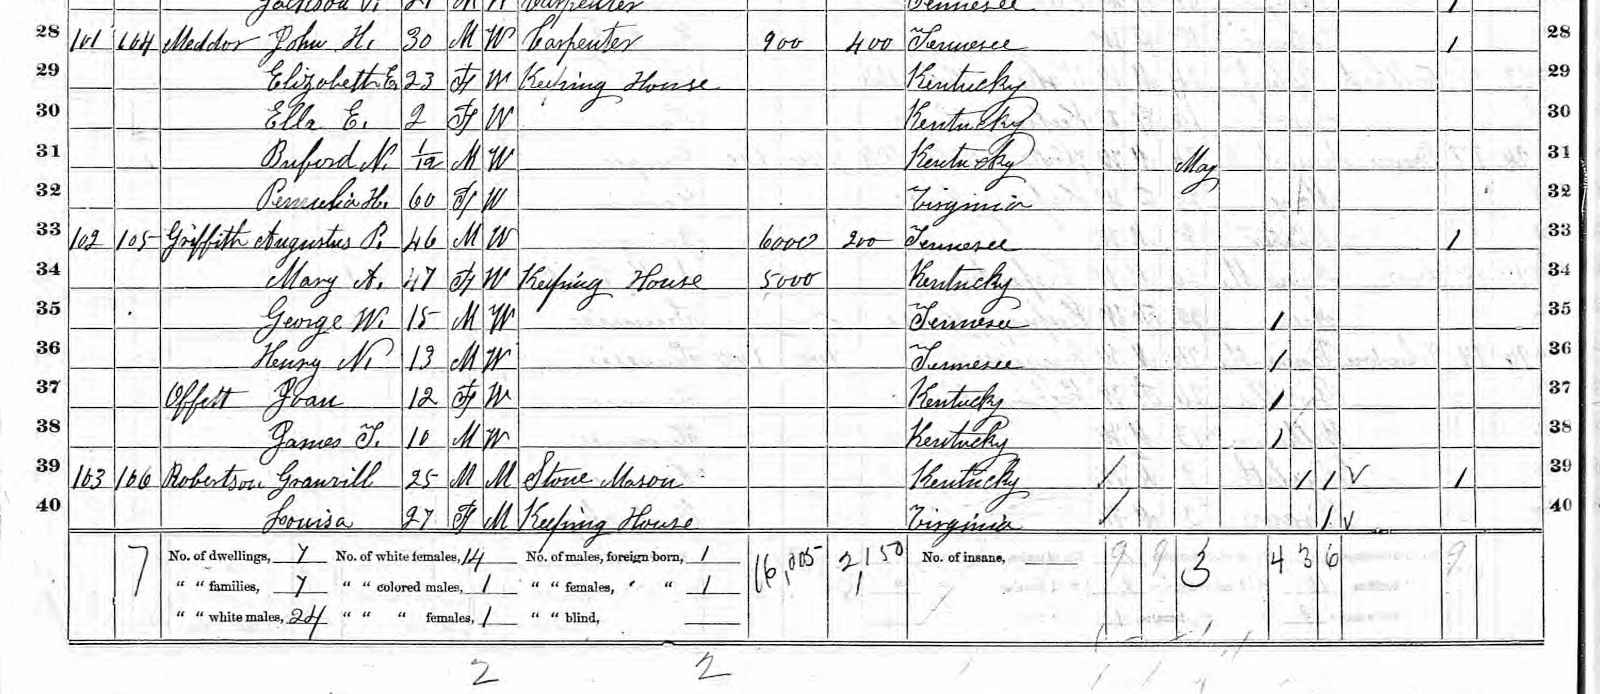 Jackson 21 M W Carpenter Tennesee 1
28 101 104 Meddor John H. 30 M W Carpenter 900 400 Tennesee 1 28
29 Elizabeth E. 23 F W Keeping House Kentucky 29
30 Ella E. 2 F W Kentucky 30
31 Buford N. 1/12 M W Kentucky May 31
32 Permelia H. 60 F W Virginia 32
33 102 105 Griffith Augustus P. 46 M W 6000 200 Tennesee 1 33
34 Mary A. 47 F W Keeping House 5000 Kentucky 34
35 George W. 15 M W Tennesee 1 35
36 Henry N. 13 M W Tennesee 1 36
37 Offett Joan 12 F W Kentucky 1 37
38 James T. 10 M W Kentucky 1 38
39 103 106 Robertson Granvill 25 M M Stone Mason Kentucky / 1 1 V 1 39
40 Louisa 27 F M Keeping House Virginia / 1 V 40
7 No. of dwellings, 7 No. of white females, 14 No. of males, foreign born, 1 16,005 2,150 No. of insane, 9 9 3 4 3 6 9
" " families, 7 " " colored males, 1 " " females, " " 1
" " white males, 24 " " " females, 1 " " blind,
2 2